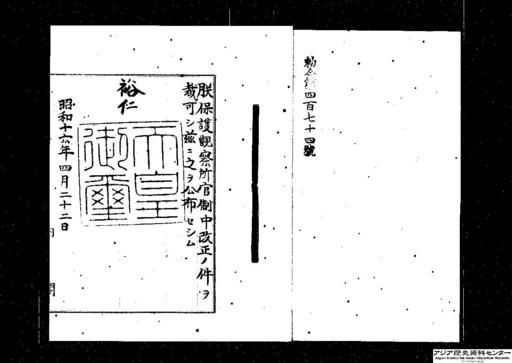 勅令第四百七十四號
朕保護觀察所官制中改正ノ件ヲ
裁可シ茲ニ之ヲ公布セシム
裕仁
天皇御璽
昭和十六年四月二十二日
アジア歴史資料センター
Japan Center for Asian Historical Records